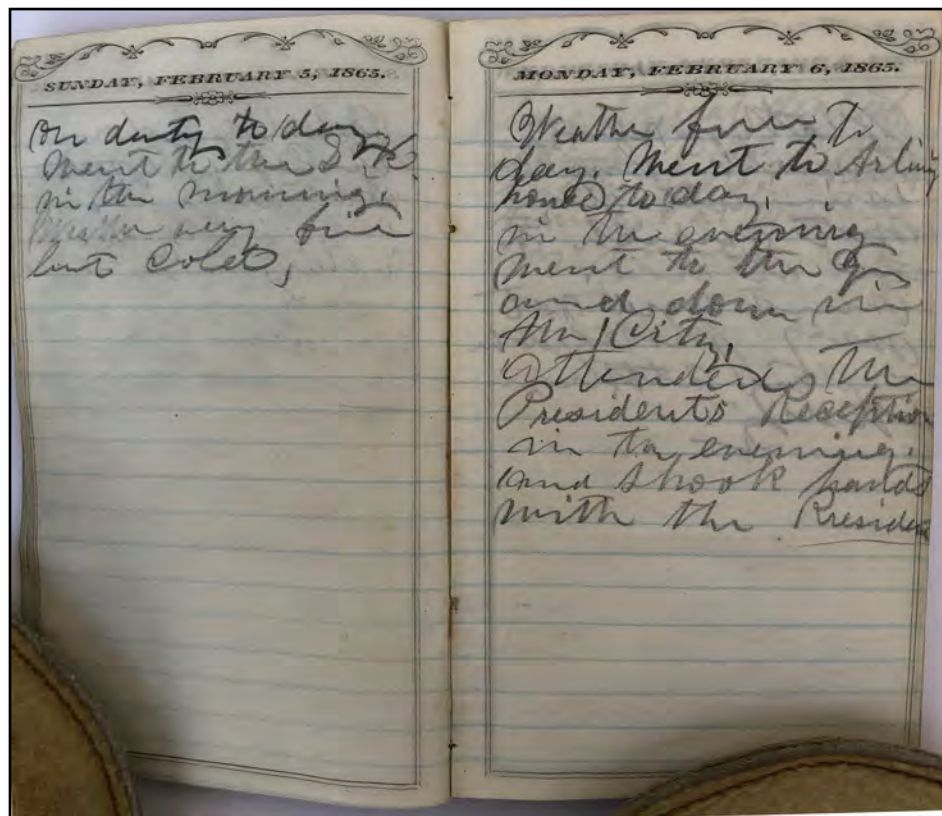 SUNDAY, FEBRUARY 5, 1865.
On duty to day
Went to the
in the morning.
Weather very fine
but Cold,
MONDAY, FEBRUARY 6, 1865.
Weather fine to
day. Went to Arling
house to day.
in the evening
went to the
and down in
the City,
attended the
Presidents Reception
in the evening.
and shook hands
with the President